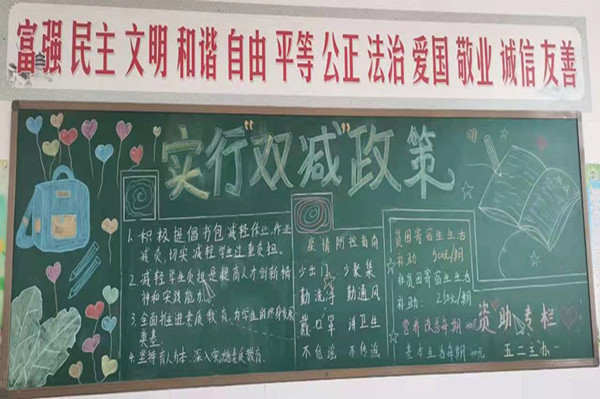 富强 民主 文明 和谐 自由 平等 公正 法治 爱国 敬业 诚信 友善
实行"双减"政策
1. 积极提倡书包减轻作业,作业
减负,切实减轻学生过重负担。
2. 减轻学生负担是提高人才创新精
神和实践能力
3. 全面推进素质教育,为学生的终身发展
奠基
4. 坚持育人为本,深入实施素质教育。
疫情防控指南
少出门 少聚集
勤洗手 勤通风
戴口罩 讲卫生
不信谣 不传谣
贫困寄宿生生活
补助: 500元/期
非贫困寄宿生生活
补助: 250元/期
营养改善每期
资助专栏
五二主办